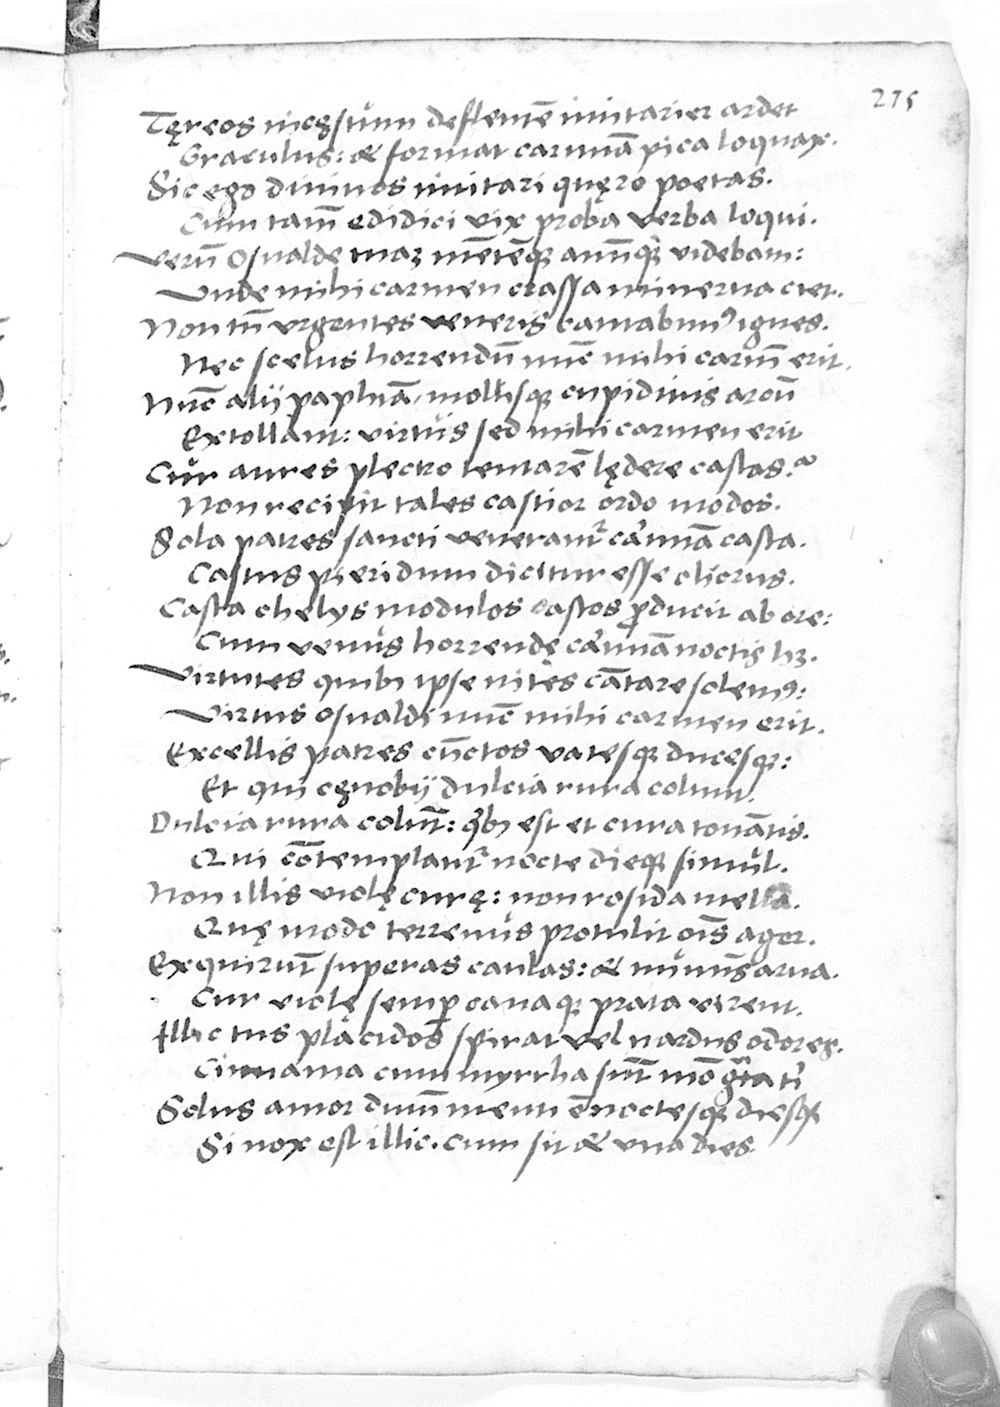 275
Tęreos incęstum deflentē imitarier ardet
Graculus: & format carminā pica loquax.
Sic ego diuinos imitari quęro poetas.
Cum tam̄ edidici vix proba verba loqui.
Verū Osualde maꝫ mētēqꝫ animūqꝫ videbam:
Vnde mihi carmen crassa minerua ciet.
Non tn̄ vrgentes veneris cantabimꝰ ignes.
Nec scelus horrendū nūc mihi carmē erit.
Nūc alij paphiā, mollisqꝫ cupidinis arcū
Extollant: virtus sed mihi carmen erit
Cur aures plectro tentarē lędere castas?
Non recipit tales castior ordo modos.
Sola patres sancti venerant᷑ carminā casta.
Castus pieridum dicitur esse chorus.
Casta chelys modulos castos ꝓducit ab ore:
Cum venus horrendę carminā noctis hꝫ.
Virtutes quibꝫ ipse nites cātare solemꝰ:
Virtus osualdi nūc mihi carmen erit.
Excellis patres cūctos vatesqꝫ ducesqꝫ:
Et qui cęnobij dulcia rura colunt.
Dulcia rura colūt: qͥbꝫ est et cura tonātis.
Qui cōtemplant᷑ nocte dieqꝫ simul.
Non illis violę curę: non rosida mella.
Quę modo terrenus protulit oīs ager.
Exquirūt superas caulas: & numīs arua.
Cur violę semꝑ canaqꝫ prata virent.
Illic tus placidos spirat vel nardus odores.
Cinnama cum myrrha sūt mō grata ti
Solus amor diuū menti ē noctesqꝫ diesqꝫ
Si nox est illic. cum sit & vna dies.